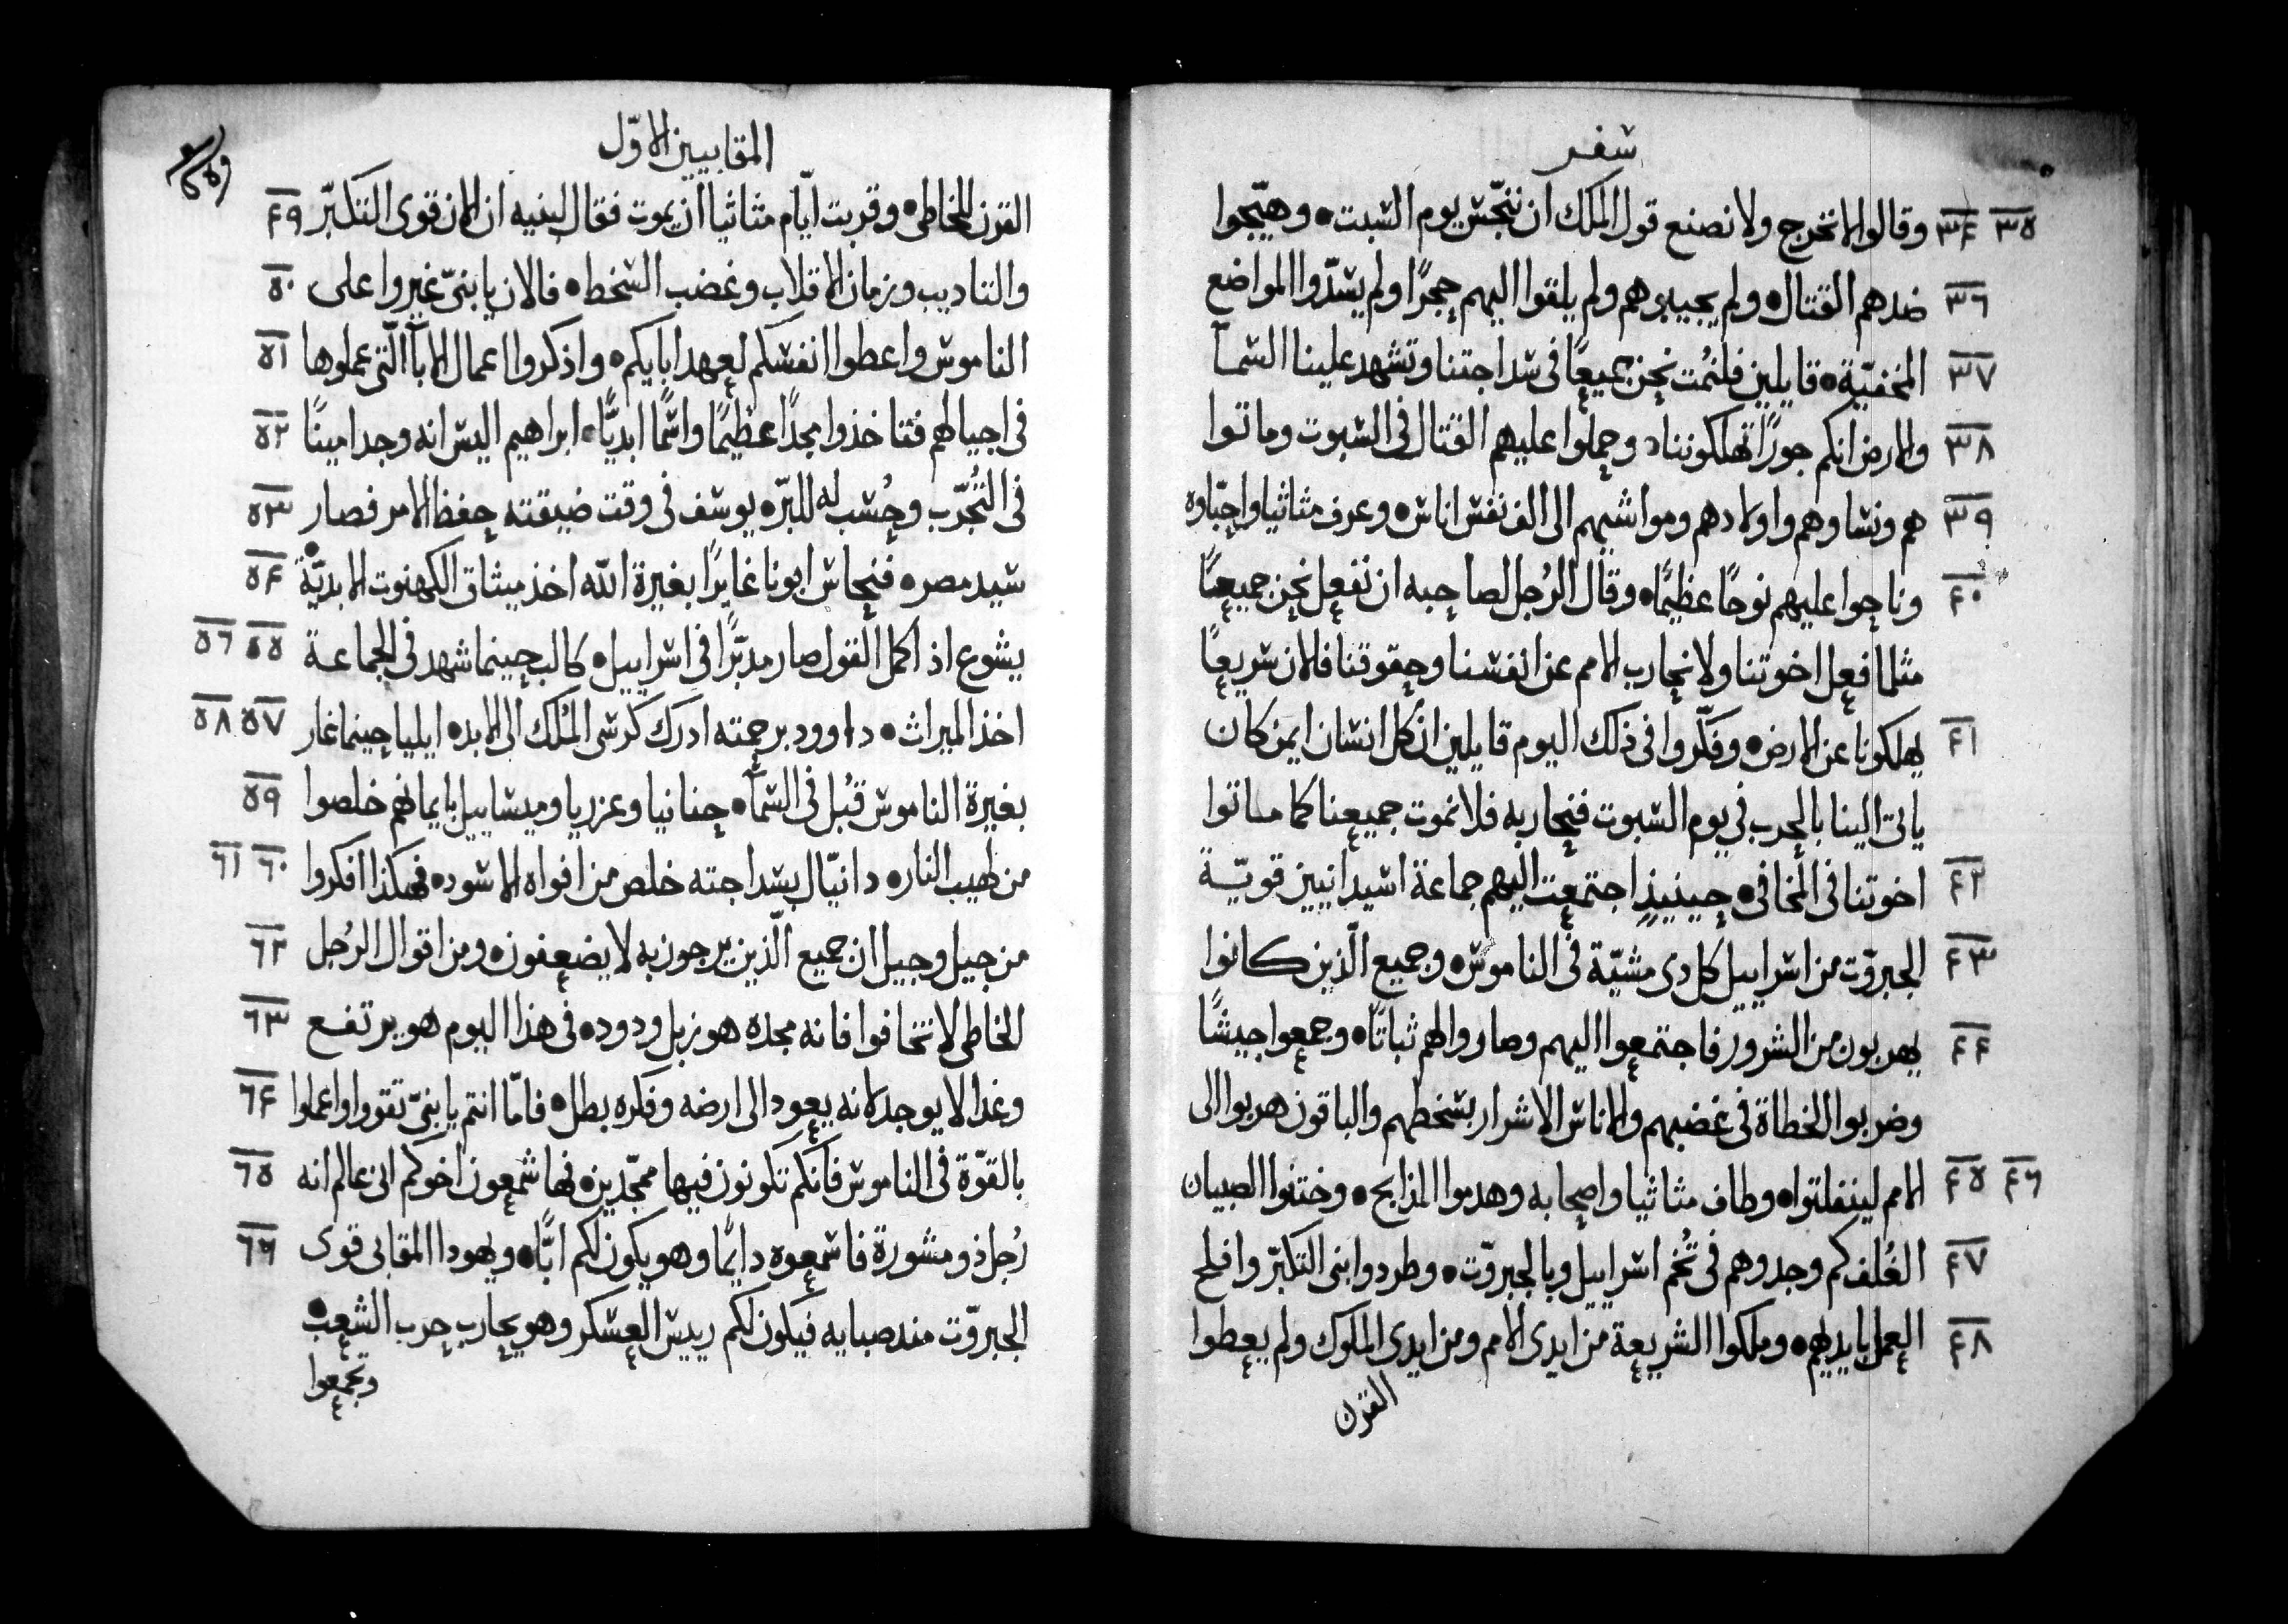 سفر
٣٤ ٣٥ وقالوا لا نخرج ولا نصنع قول الملك ان ننجّس يوم السبت۰ وهيّجوا
٣٦ ضدهم القتال۰ ولم يجيبوهم ولم يلقوا اليهم حجرًا ولم يسّدوا المواضع
٣٧ المخفيّة۰ قايلين فلنمُت نحن جميعًا في سداجتنا وتشهد علينا السمآ
٣٨ والارض انكم جورًا تهلكوننا۰ وحملوا عليهم القتال في السبوت وماتوا
٣٩ هم ونساوهم واولادهم ومواشيهم الى الف نفس اناس۰ وعرف متاثيا واحبّاوه
٤٠ وناحوا عليهم نوحًا عظيمًا۰ وقال الرُجل لصاحبه ان نفعل نحن جميعنًا
مثلما فعل اخوتنا ولا نحارب الامم عن انفسنا وحقوقنا فالان سريعًا
٤١ يهلكونا عن الارض۰ وفكّروا في ذلك اليوم قايلين ان كل انسان ايمن كان
ياتي الينا بالحرب في يوم السبوت فنحاربه فلا نموت جميعنا كما ماتوا
٤٢ اخوتنا في المخافي۰ حينيذٍ اجتمعت اليهم جماعة اسيدانيين قويّة
٤٣ الجبروّت من اسراييل كل دى مشيّة في الناموس۰ وجميع الّذين كانوا
٤٤ يهربون من الشرور فاجتمعوا اليهم وصاروا لهم ثباتًا۰ وجمعوا جيشًا
وضربوا الخطاة في غضبهم والاناس الاشرار بسخطهم والباقون هربوا الى
٤٥ ٤٦ الامم لينفلتوا۰ وطاف متاثيا واصحابه وهدموا المذابح۰ وختنوا الصبيان
٤٧ الغُلف كم وجدوهم في تُخم اسراييل وبالجبروّت۰ وطردوا بني التكبّر وافلح
٤٨ العمل بايديهم۰ وملكوا الشريعة من ايدى الامم ومن ايدى الملوك ولم يعطوا
القرن
المقابيين الاوّل
٤٩ القرن للخاطي۰ وقربت ايّام متاثيا ان يموت فقال لبنيه ان الان قوى التكبّر
٥٠ والتاديب وزمان الاقلاب وغضب السخط۰ فالان يا بنىّ غيروا على
٥١ الناموس واعطوا انفسكم لعهد ابايكم۰ واذكروا اعمال الابآ الّتي عملوها
٥٢ في اجيالهم فتاخذوا مجدًا عظيمًا واسمًا ابديًّا۰ ابراهيم اليس انه وجد امينًا
٥٣ في التُجرّب وحُسب له للبرّ۰ يوسف في وقت ضيقته حفظ الامر فصار
٥٤ سيد مصر۰ فنحاس ابونا غايرًا بغيرة اللّه اخذ ميثاق الكهنوت الابديّة۰
٥٥ ٥٦ يشوع اذ اكمل القول صار مدبّرًا في اسراييل۰ كالب حينما شهد في الجماعة
٥٧ ٥٨ اخذ الميراث۰ داوود برحمته ادرك كرسى المُلك الى الابد۰ ايليا حينما غار
٥٩ بغيرة الناموس قبُل في السمآ۰ حنانيا وعزريا وميشاييل بايمانهم خلصوا
٦٠ ٦١ من لهيب النار۰ دانيّال بسداجته خلص من افواه الاسود۰ فهكذا افكروا
٦٢ من جيل وجيل ان جميع الّذين يرجون به لا يضعفون۰ ومن اقوال الرُجل
٦٣ الخاطى لا تخافوا فانه مجده هو زبل ودود۰ في هذا اليوم هو يرتفع
٦٤ وغدا لا يوجد لانه يعود الى ارضه وفكره بطل۰ فامّا انتم يا بنىّ تقووا واعملوا
٦٥ بالقوّة في الناموس فانكم تكونون فيها ممجّدين۰ فها سمعون اخوكم انى عالم انه
٦٦ رُجل ذو مشورة فاسمعوه دايمًا وهو يكون لكم ابًّا۰ ويهودا المقابى قوى
الجبروّت منذ صبايه فيكون لكم رييس العسكر وهو يحارب حرب الشعب۰
وتجمعوا